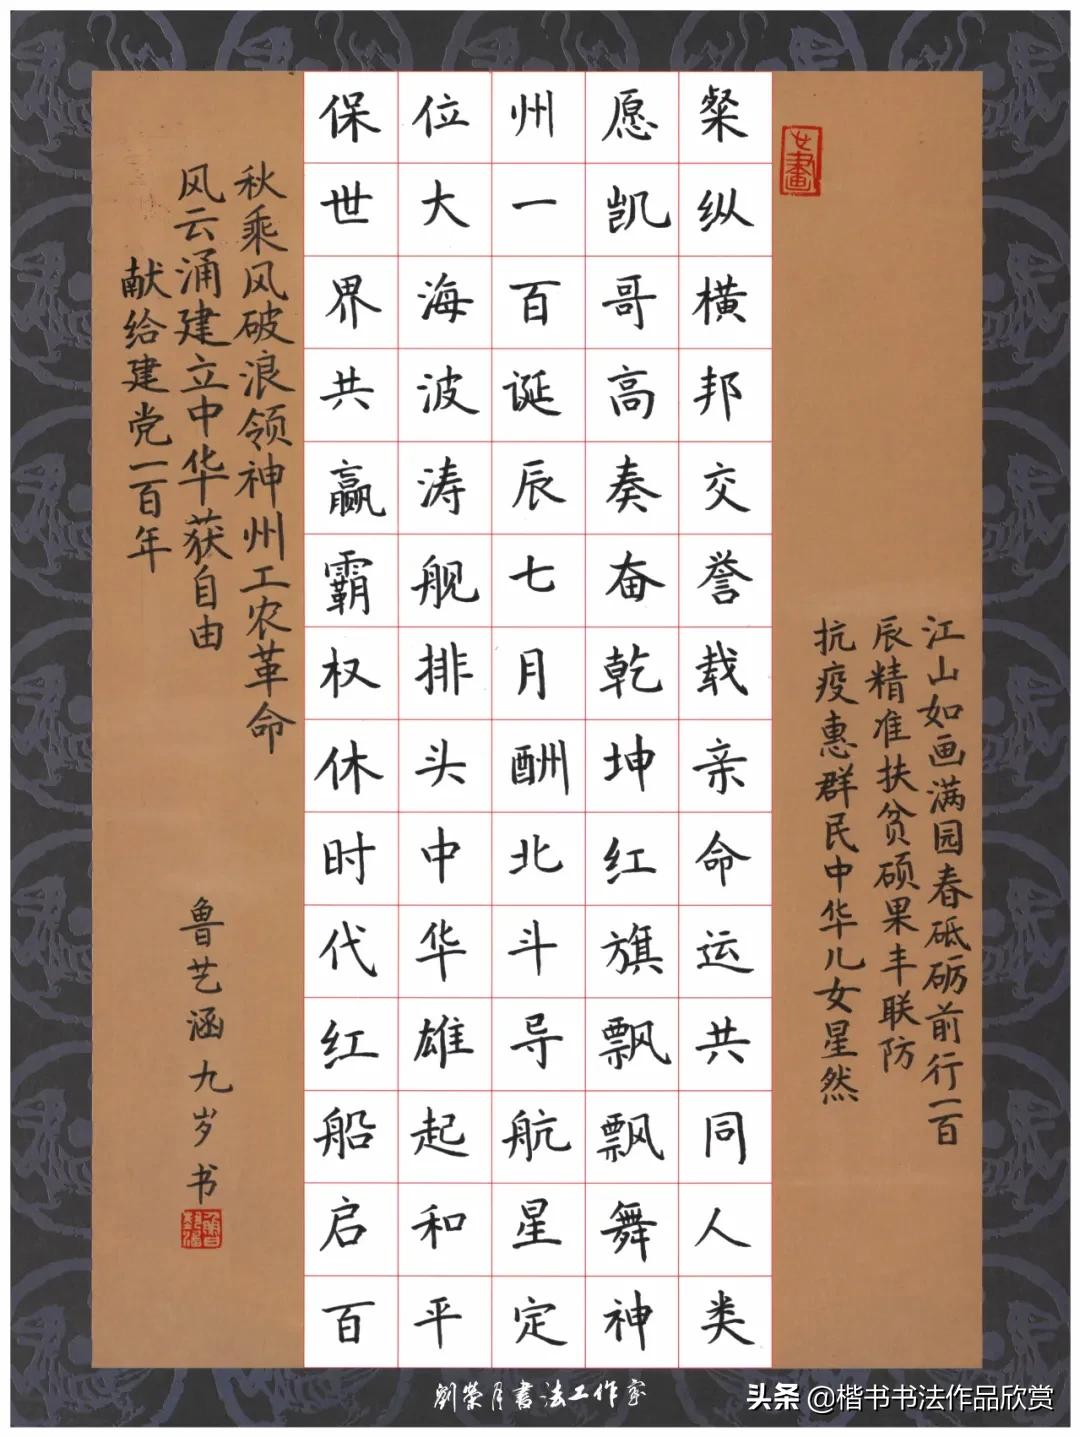 江山如画满园春砥砺前行一百
辰精准扶贫硕果丰联防
抗疫惠群民中华儿女星然
粲纵横邦交誉载亲命运共同人类
愿凯哥高奏奋乾坤红旗飘飘舞神
州一百诞辰七月酬北斗导航星定
位大海波涛舰排头中华雄起和平
保世界共赢霸权休时代红船启百
秋乘风破浪领神州工农革命
风云涌建立中华获自由
献给建党一百年
鲁艺涵九岁书
劉榮月書法工作室
头条 @楷书书法作品欣赏